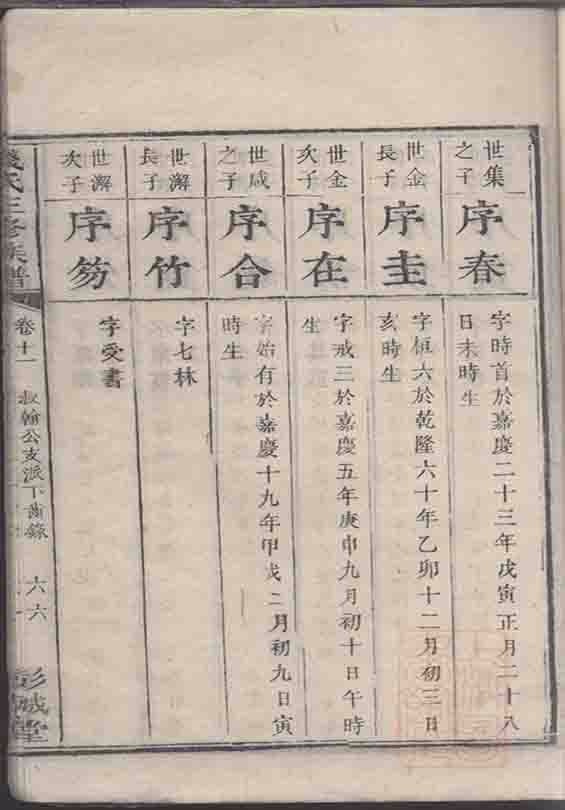 世集
之子
序春
字時首於嘉慶二十三年戊寅正月二十八
日未時生
世金
長子
序圭
字桓六於乾隆六十年乙卯十二月初三日
亥時生
世金
次子
序在
字戒三於嘉慶五年庚申九月初十日午時
生
世咸
之子
序合
字始有於嘉慶十九年甲戌二月初九日寅
時生
世澥
長子
序竹
字七林
世澥
次子
序笏
字受書
錢氏三修族譜
卷十一
叔翰公支派下齒錄
六六
彭城堂